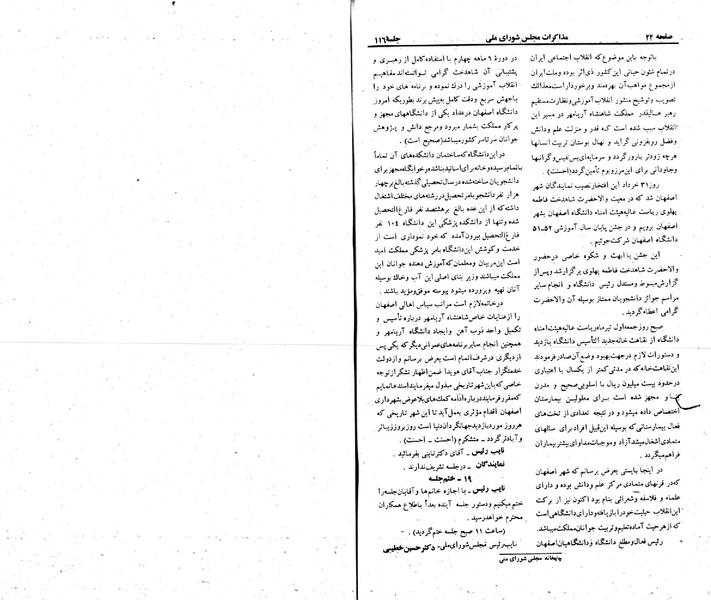 صفحه ۲۲
مذاکرات مجلس شورای ملی
جلسه ۱۱۶
باتوجه باین موضوع که انقلاب اجتماعی ایران
در تمام شئون حیاتی این کشور ذی‌اثر بوده و ملت ایران
از مجموع مواهب آن بهره‌مند و برخوردار است معذالک
تصویب و توشیح منشور انقلاب آموزشی و نظارت مستقیم
رهبر عالیقدر مملکت شاهنشاه آریامهر در مسیر این
انقلاب سبب شده است که قدر و منزلت علم و دانش
وفضل روبفزونی گراید و نهال بوستان تربیت انسانها
هرچه زودتر بارور گردد و سرمایه‌ای بس نفیس و گرانبها
وجاودانی برای این مرز و بوم تأمین گردد (احسنت).
روز ۳۱ خرداد این افتخار نصیب نمایندگان شهر
اصفهان شد که در معیت والاحضرت شاهدخت فاطمه
پهلوی ریاست عالیه هیئت امناء دانشگاه اصفهان بشهر
اصفهان برویم و در جشن پایان سال آموزشی ۵۲ـ۵۱
دانشگاه اصفهان شرکت جوئیم.
این جشن با ابهت و شکوه خاصی در حضور
والاحضرت شاهدخت فاطمه پهلوی برگزار شد و پس از
گزارش مبسوط و مستدل رئیس دانشگاه و انجام سایر
مراسم جوائز دانشجویان ممتاز بوسیله آن والاحضرت
گرامی اعطاء گردید.
صبح روز جمعه اول تیرماه ریاست عالیه هیئت امناء
دانشگاه از نقاهت خانه جدید التأسیس دانشگاه بازدید
و دستورات لازم در جهت بهبود وضع آن صادر فرمودند
این نقاهت خانه که در مدتی کمتر از یکسال با اعتباری
در حدود بیست میلیون ریال با اسلوبی صحیح و مدرن
و مجهز شده است برای معلولین بیمارستان
اختصاص داده میشود و در نتیجه تعدادی از تخت‌های
فعال بیمارستانی که بوسیله این قبیل افراد برای سالهای
متمادی اشغال میشد آزاد و موجبات مداوای بیشتر بیماران
فراهم میگردد.
در اینجا بایستی بعرض برسانم که شهر اصفهان
که در قرنهای متمادی مرکز علم و دانش بوده و دارای
علماء و فلاسفه و شعرائی بنام بود اکنون نیز از برکت
این انقلاب حیثیت خود را بازیافته و دارای دانشگاهی است
که از هر حیث آماده تعلیم و تربیت جوانان مملکت میباشد.
رئیس فعال و مطلع دانشگاه و دانشگاهیان اصفهان
در دورهٔ ۶ ماهه چهارم با استفاده کامل از رهبری و
پشتیبانی آن شاهدخت گرامی توانسته‌اند مفاهیم
انقلاب آموزشی را درک نموده و برنامه های خود را
باجهش سریع و دقت کامل به پیش برند بطوریکه امروز
دانشگاه اصفهان در عداد یکی از دانشگاههای مجهز و
پرکار مملکت بشمار میرود و مرجع دانش و پژوهش
جوانان سرتاسر کشور میباشد (صحیح است).
در این دانشگاه که ساختمان دانشکده‌های آن تماماً
باتمام رسیده و خانه برای اساتید بنا شده و خوابگاه مجهز برای
دانشجویان ساخته شده در سال تحصیلی گذشته بالغ بر چهار
هزار نفر دانشجو بامر تحصیل در رشته‌های مختلف اشتغال
داشته که از این عده بالغ بر هشتصد نفر فارغ‌التحصیل
شده و تنها از دانشکده پزشکی این دانشگاه ۱۰۴ نفر
فارغ‌التحصیل بیرون آمده که خود نموداری است از
خدمت و کوشش این دانشگاه بامر پزشکی مملکت امید
است این مربیان و معلمان که آموزش دهنده جوانان این
مملکت میباشند و زیر بنای اصلی این آب و خاک بوسیله
آنان تهیه و پرورده میشود پیوسته موفق و مؤید باشند.
در خاتمه لازم است مراتب سپاس اهالی اصفهان
را از عنایات خاص شاهنشاه آریامهر درباره تأسیس و
تکمیل واحد ذوب آهن و ایجاد دانشگاه آریامهر و
همچنین انجام سایر برنامه‌های عمرانی دیگر که یکی پس
از دیگری در شرف اتمام است بعرض برسانم و از دولت
خدمتگزار جناب آقای هویدا ضمن اظهار تشکر از توجه
خاصی که باین شهر تاریخی مبذول میفرمایند استدعا نمایم
که مقرر فرمایند در باره ادامه کمک‌های بلاعوض بشهرداری
اصفهان اقدام مؤثری بعمل آید تا این شهر تاریخی که
هر روز مورد بازدید جهانگردان دنیا است روز بروز زیباتر
و آبادتر گردد ـ متشکرم (احسنت ـ احسنت).
نایب رئیس ـ آقای دکتر نایبی بفرمائید.
نمایندگان ـ در جلسه تشریف ندارند.
۱۹ ـ ختم جلسه
نایب رئیس ـ با اجازه خانم‌ها و آقایان جلسه را
ختم میکنیم و دستور جلسه آینده بعداً باطلاع همکاران
محترم خواهد رسید.
(ساعت ۱۱ صبح جلسه ختم گردید)
نایب رئیس مجلس شورای ملی ـ دکتر حسین خطیبی
چاپخانه مجلس شورای ملی